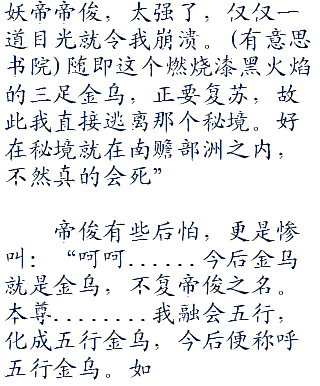 妖帝帝俊，太强了，仅仅一
道目光就令我崩溃。(有意思
书院)随即这个燃烧漆黑火焰
的三足金乌，正要复苏，故
此我直接逃离那个秘境。好
在秘境就在南赡部洲之内，
不然真的会死”
帝俊有些后怕，更是惨
叫：“呵呵......今后金乌
就是金乌，不复帝俊之名。
本尊........我融会五行，
化成五行金乌，今后便称呼
五行金乌。如